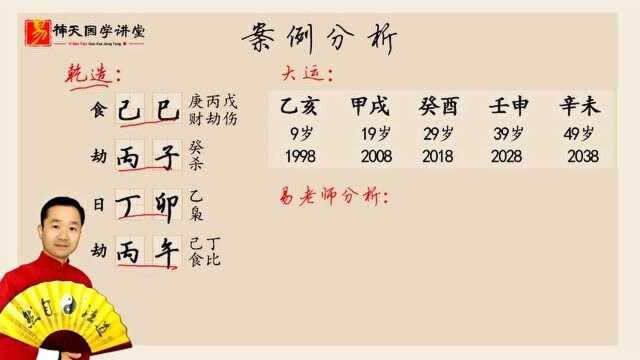 易
天国学讲堂
案例分析
乾造：
食 己 巳 庚丙戊
财劫伤
劫 丙 子 癸
杀
日 丁 卯 乙
枭
劫 丙 午 己丁
食比
大运：
乙亥 甲戌 癸酉 壬申 辛未
9岁 19岁 29岁 39岁 49岁
1998 2008 2018 2028 2038
易老师分析：
然自法道